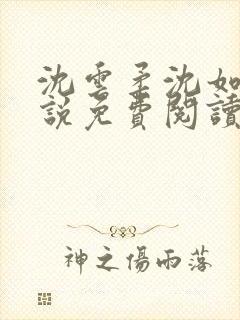 沈雲柔沈如
說免費閱讀
神之傷雨落